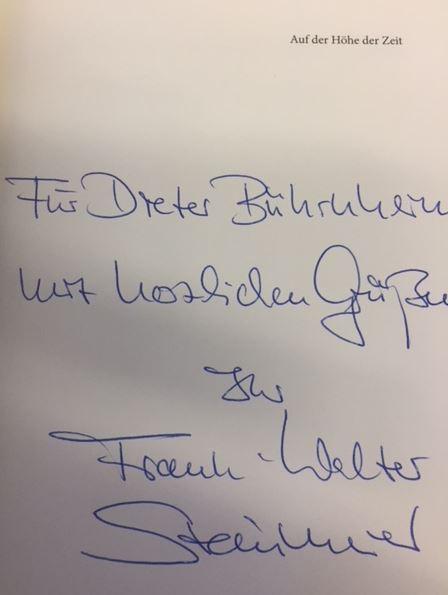 Auf der Höhe der Zeit
Für Dieter Bührnheim
mit herzlichen Grüßen
Ihr
Frank-Walter
Steinmeier